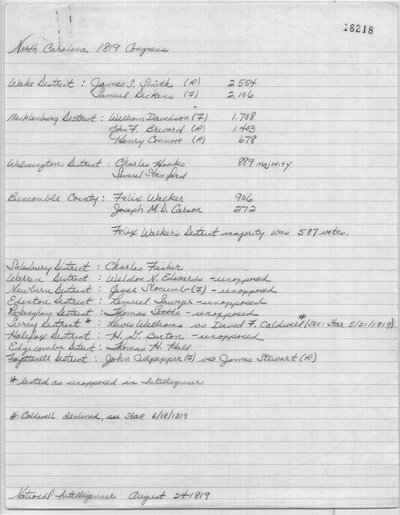 18218
North Carolina 1819 Congress
Wake District : James S. Smith (R) 2554
Samuel Dickens (F) 2,106
Mecklenburg District : William Davidson (F) 1.708
John F. Brevard (R) 1.403
Henry Connor (R) 678
Wilmington District : Charles Hooks 889 majority
Samuel Stanford
Buncombe County : Felix Walker 906
Joseph M.D. Carson 272
Felix Walkers District majority was 587 votes.
Salisbury District : Charles Fisher
Warren District : Weldon N. Edwards - unopposed
Newburn District : Jesse Slocumb (F) - unopposed
Edenton District : Lemuel Sawyer - unopposed
Rockingham District : Thomas Settle - unopposed
Surry District * : Lewis Williams vs David F. Caldwell # (see: Star 5/21/1819)
Halifax District : H. G. Burton - unopposed
Edgecombe District : Thomas H. Hall
Fayetteville District : John Culpepper (F) vs James Stewart (R)
* listed as unopposed in Intelligencer
# Caldwell declined, see Star 6/18/1819
National Intelligencer August 24 1819